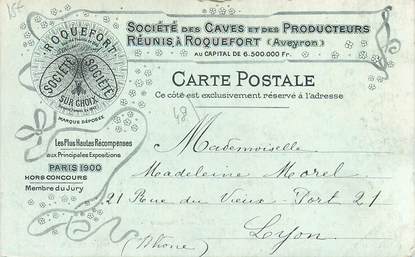 15f
SOCIÉTÉ DES CAVES ET DES PRODUCTEURS
RÉUNIS, À ROQUEFORT (AVEYRON)
AU CAPITAL DE 6.500.000 Fr.
ROQUEFORT
SOCIÉTÉ
SOCIÉTÉ
SUR CHOIX
MARQUE DÉPOSÉE
CARTE POSTALE
Ce côté est exclusivement réservé à l'adresse
48
Les Plus Hautes Récompenses
aux Principales Expositions
PARIS 1900
HORS CONCOURS
Membre du Jury
Mademoiselle
Madeleine Morel
21 Rue du Vieux-Port 21
Lyon
(Rhône)